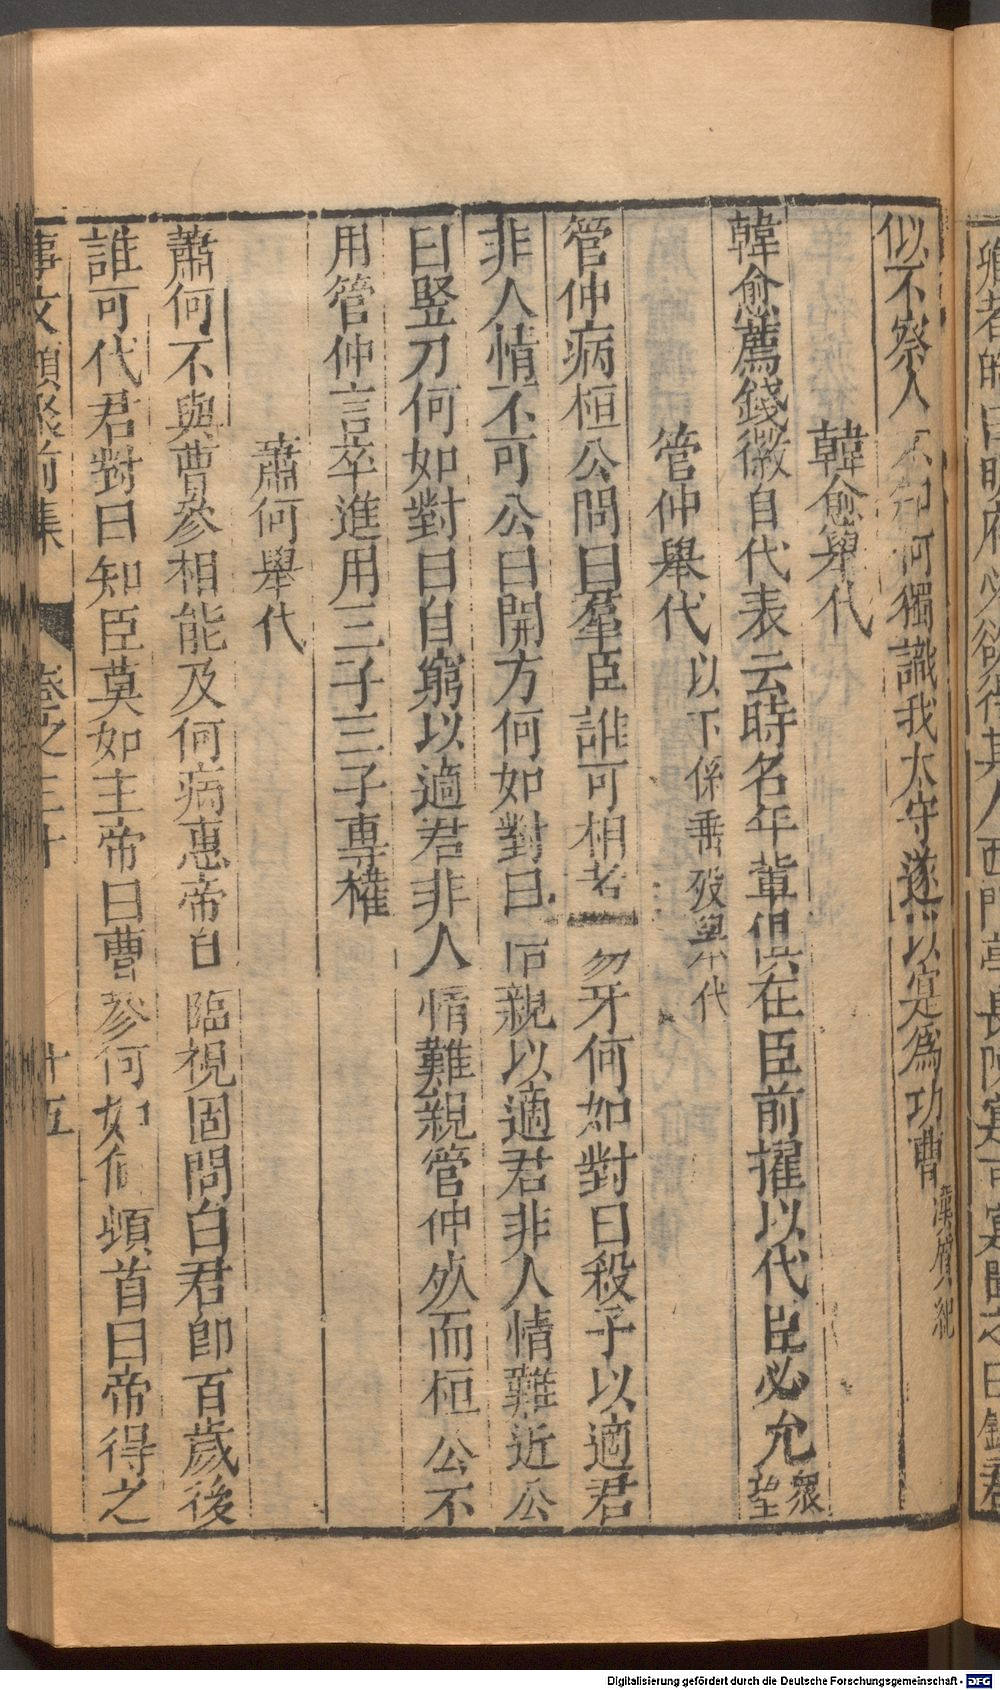 似不察人不知何獨識我太守遂以寔爲功曹 漢質紀
韓愈舉代
韓愈薦錢徽自代表云時名年輩俱在臣前擢以代臣必允 衆望
管仲舉代 以下係垂歿舉代
管仲病桓公問曰羣臣誰可相者 易牙何如對曰殺子以適君
非人情不可公曰開方何如對曰 親以適君非人情難近公
曰竪刀何如對曰自宮以適君非人情難親管仲死而桓公不
用管仲言卒進用三子三子専權
蕭何舉代
蕭何不與曹參相能及何病惠帝自臨視固問曰君即百歲後
誰可代君對曰知臣莫如主帝曰曹參何如何頓首曰帝得之
事文類聚前集 卷之三十 十五
Digitalisierung gefördert durch die Deutsche Forschungsgemeinschaft - DFG